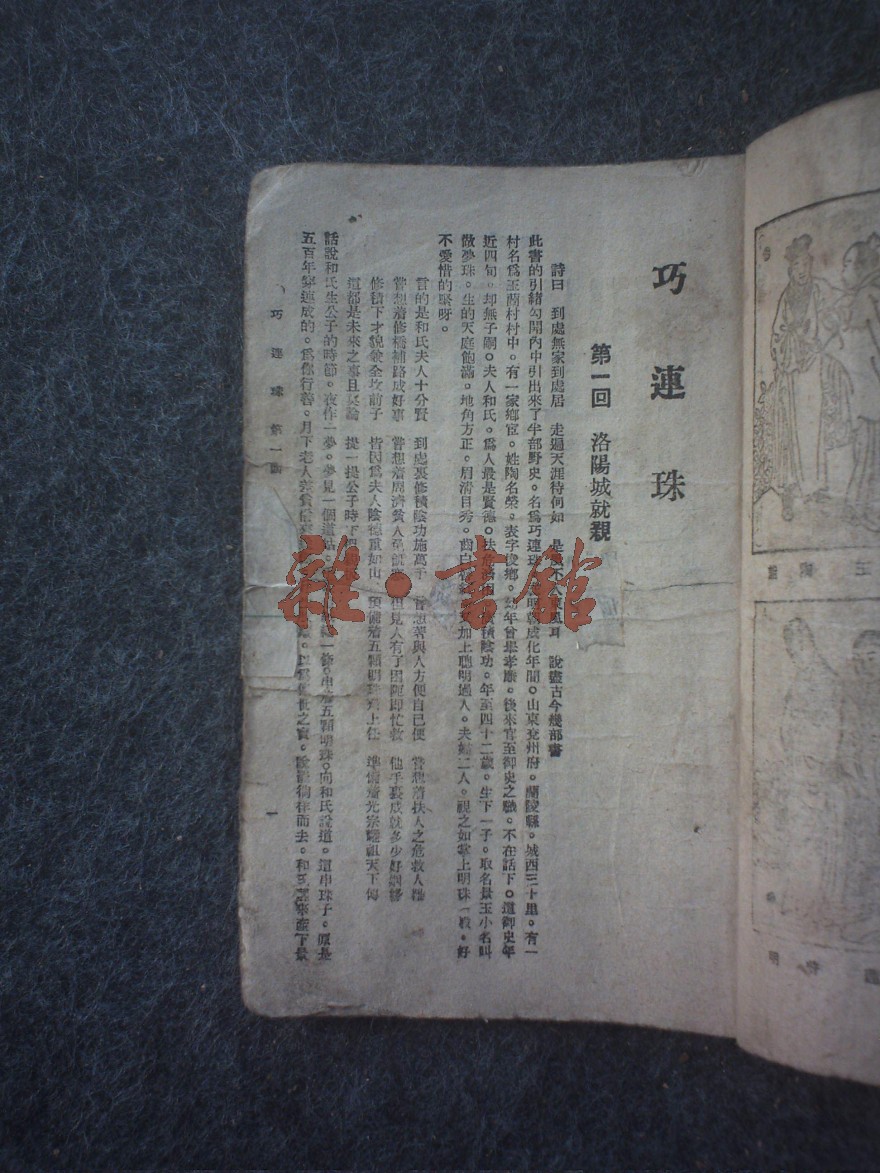 巧連珠
第一回 洛陽城就親
詩曰 到處無家到處居 走過天涯待何如 是 不 風耳 說盡古今幾部書
此書的引緒勾開內中引出來了半部野史。名爲巧連珠 明朝成化年間。山東兗州府。蘭陵縣。城西三十里。有一
村名爲王蘭村村中。有一家鄉宦。姓陶名榮。表字俊鄉。幼年曾舉孝廉。後來官至御史之職。不在話下。這御史年
近四旬。却無子嗣。夫人和氏。爲人最是賢德。 積陰功。年至四十二歲。生下一子。取名景玉小名叫
做夢珠。生的天庭飽滿。地角方正。眉清目秀。齒白 又加上聰明過人。夫婦二人。視之如掌上明珠一般。好
不愛惜的緊呀。
言的是和氏夫人十分賢 到處裏修積陰功施萬千 常想著與人方便自己便 常想着扶人之危救人難
常想着修橋補路成好事 常想着周濟貧人 但見人有了困難即忙救 他手裏成就多少好姻緣
修積下才貌雙全坟前子 皆因爲夫人陰德重如山 預備着五顆明珠 上任 準備着光宗耀祖天下傳
這都是未來之事且莫論 提一提公子時下
話說和氏生公子的時節。夜作一夢。夢見一個道姑。 一條。串着五顆明珠。向和氏說道。這串珠子。原是
五百年前連成的。爲你行善。月下老人 之寶。 徜徉而去。和氏 來產下景
巧連珠 第一回
一
雜·書館